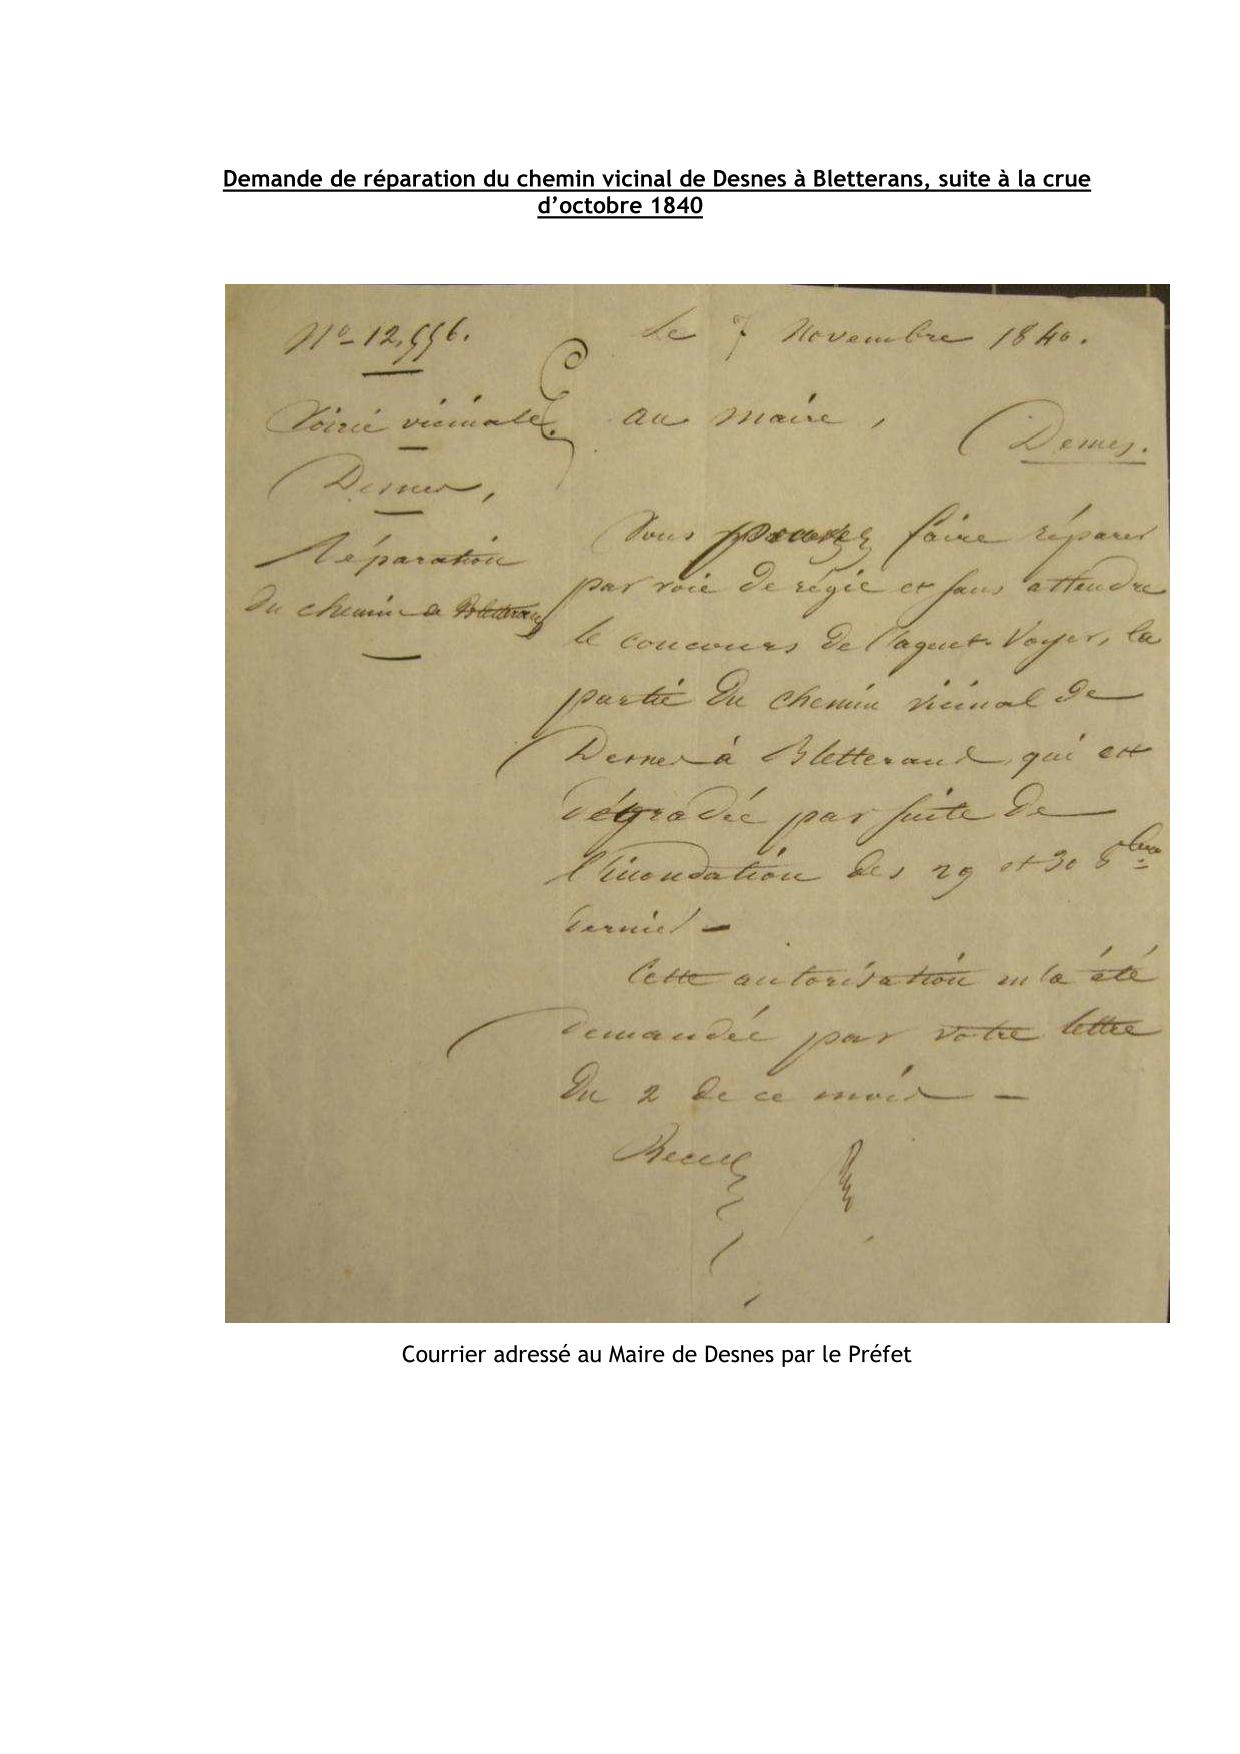 Demande de réparation du chemin vicinal de Desnes à Bletterans, suite à la crue
d’octobre 1840
Le 7 Novembre 1840.
Voirie vicinale.
Desnes,
Réparation
du chemin de Bletterans
au Maire,
Desnes.
Vous pouvez faire réparer
par voie de régie et sans attendre
le concours de l'agent-Voyer, la
partie du chemin vicinal de
Desnes à Bletterans qui est
dégradée par suite de
l'inondation des 29 et 30 8bre
dernier -
Cette autorisation m'a été
demandée par votre lettre
du 2 de ce mois -
Recevez
Courrier adressé au Maire de Desnes par le Préfet